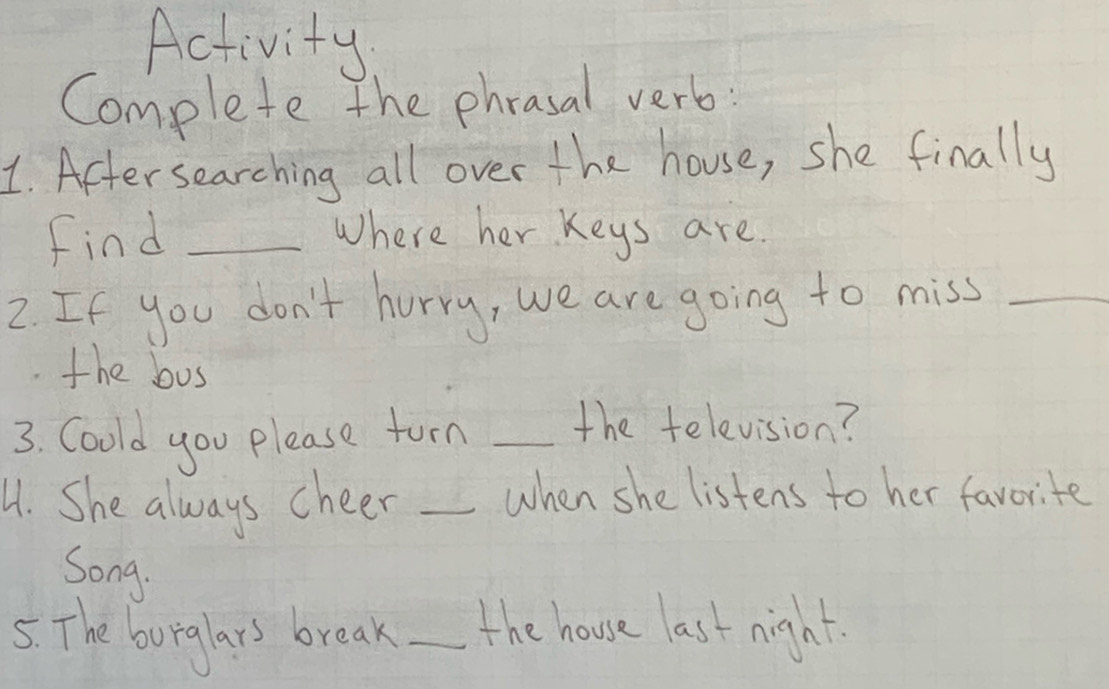 Activity.
Complete the phrasal verb:
1. After searching all over the house, she finally
find ____ where her keys are.
2. If you don't hurry, we are going to miss ____
the bus
3. Could you please turn ___ the television?
4. She always cheer ___ when she listens to her favorite
song.
5. The burglars break ___ the house last night.